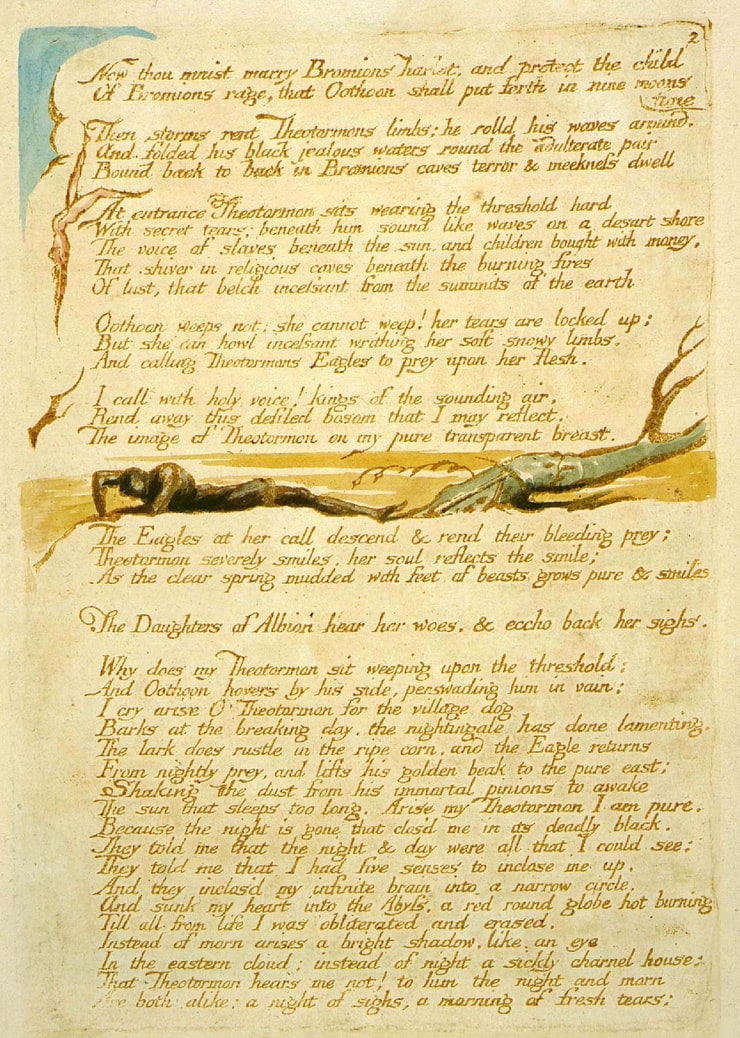 2
Now thou maist marry Bromions harlot, and protect the child
Of Bromions rage, that Oothoon shall put forth in nine moons
time
Then storms rent Theotormons limbs; he rolld his waves around.
And folded his black jealous waters round the adulterate pair
Bound back to back in Bromions caves terror & meekness dwell
At entrance Theotormon sits wearing the threshold hard
With secret tears; beneath him sound like waves on a desart shore
The voice of slaves beneath the sun, and children bought with money.
That shiver in religious caves beneath the burning fires
Of lust, that belch incessant from the summits of the earth
Oothoon weeps not: she cannot weep! her tears are locked up;
But she can howl incessant writhing her soft snowy limbs.
And calling Theotormons Eagles to prey upon her flesh.
I call with holy voice! kings of the sounding air,
Rend away this defiled bosom that I may reflect.
The image of Theotormon on my pure transparent breast.
The Eagles at her call descend & rend their bleeding prey;
Theotormon severely smiles, her soul reflects the smile;
As the clear spring mudded with feet of beasts grows pure & smiles
The Daughters of Albion hear her woes. & eccho back her sighs.
Why does my Theotormon sit weeping upon the threshold;
And Oothoon hovers by his side, perswading him in vain;
I cry arise O Theotormon for the village dog
Barks at the breaking day. the nightingale has done lamenting.
The lark does rustle in the ripe corn, and the Eagle returns
From nightly prey, and lifts his golden beak to the pure east;
Shaking the dust from his immortal pinions to awake
The sun that sleeps too long. Arise my Theotormon I am pure.
Because the night is gone that clos'd me in its deadly black.
They told me that the night & day were all that I could see;
They told me that I had five senses to inclose me up.
And they inclos'd my infinite brain into a narrow circle,
And sunk my heart into the Abyss, a red round globe hot burning
Till all from life I was obliterated and erased.
Instead of morn arises a bright shadow, like an eye
In the eastern cloud; instead of night a sickly charnel house;
That Theotormon hears me not! to him the night and morn
Are both alike; a night of sighs, a morning of fresh tears;